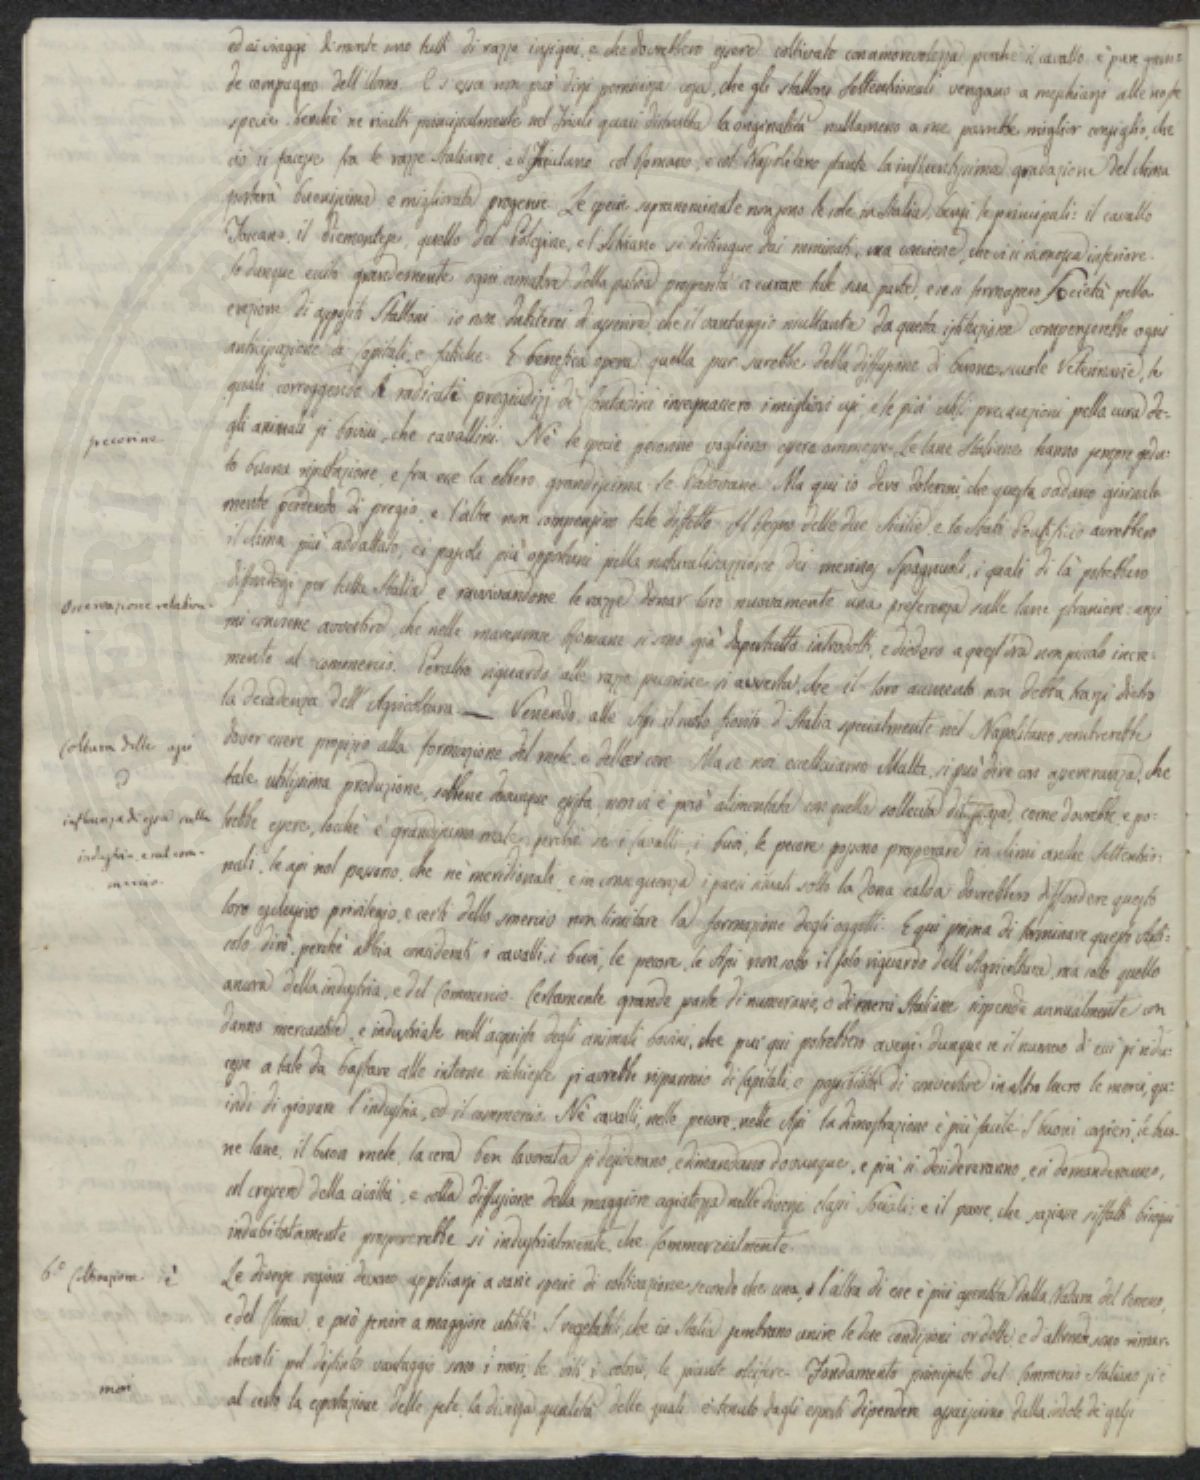 ed ai viaggi di monte sono tutti di razze insigni, e che dovrebbero essere coltivate con amorevolezza perchè il cavallo è pure gran:
de compagno dell'Uomo. E s'essa non può dirsi perniciosa cosa, che gli stalloni Settentrionali vengano a mischiarsi alle nostre
specie, benchè ne risulti principalmente nel Friuli quasi distrutta la originalità nullameno a me parrebbe miglior consiglio, che
ciò si facesse fra le razze Italiane, e il Friulano col Romano, e col Napolitano stante la gradazione del clima
porterà buonissima e migliorata progenie. Le specie soprannominate non sono le sole in Italia, bensì le principali: il cavallo
Toscano, il Piemontese, quello del Polesine, e l' si distingue dai nominati, ma conviene, che vi si riconosca inferiore.
Io dunque eccito grandemente ogni amatore della patria prosperità a curare tale sua parte, e se si formassero Società pella
erezione di appositi Stalloni io non dubiterei di asserire che il vantaggio risultante da questa istituzione compenserebbe ogni
anticipazione di Capitali, e fatiche. E benefica opera quella pur sarebbe della diffusione di buone scuole Veterinarie, le
quali correggendo i radicati pregiudizj di Contadini insegnassero i migliori usi, e le più utili precauzioni pella cura de-
pecorine
gli animali sì bovini, che cavallini. Nè le specie pecorine vogliono essere ommesse. Le lane Italiane hanno sempre godu:
to buona riputazione, e fra esse la ebbero grandissima le Padovane. Ma qui io devo dolermi, che questa vadano giornal-
mente perdendo di pregio, e l'altre non compensino tale difetto. Il Regno delle due Sicilie, e lo Stato avrebbero
il clima più addattato, ei pascoli più opportuni pella naturalizzazione dei merinos Spagnuoli, i quali di là potrebbero
Osservazione relativa.
diffondersi per tutta Italia e ravvivandone le razze donar loro nuovamente una preferenza sulle lane straniere: anzi
mi conviene avvertire, che nelle maremme Romane si sono già dapertutto introdotti, e diedero a quest'ora non piccolo incre:
mento al commercio. Peraltro riguardo alle razze pecorine si avverta, che il loro aumento non debba trarsi dietro
la decadenza dell'Agricoltura. — Venendo alle Api il suolo fiorito d'Italia specialmente nel Napolitano sembrerebbe
Coltura delle api
e
influenza di essa sulla
industria, e sul com-
mercio.
dover essere propizio alla formazione del mele, e delle cere. Ma se noi eccettuiamo Malta, si può dire con asseveranza, che
tale utilissima produzione, sebbene dovunque esista, non vi è però alimentata con quella sollecita diligenza, come dovrebbe, e po:
trebbe essere, locchè è grandissimo male, perchè se i cavalli, i buoi, le pecore possono prosperare in climi anche Settentrio:
nali, le api nol possono, che ne' meridionali, e in conseguenza i paesi situati sotto la Zona calda dovrebbero diffondere questo
loro esclusivo privilegio, e certi dello smercio non limitare la formazione degli oggetti. E qui prima di terminare questo Arti:
colo dirò, perchè abbia considerati i cavalli, i buoi, le pecore, le Api non sotto il solo riguardo dell'Agricoltura, ma sotto quello
ancora della industria, e del Commercio. Certamente grande parte di numerario, o di merci Italiane si spende annualmente con
danno mercantile, e industriale nell'acquisto degli animali bovini, che pur qui potrebbero aversi: dunque se il numero di essi si ridu:
cesse a tale da bastare alle interne richieste si avrebbe risparmio di Capitali, o possibilità di convertire in altro lucro le merci, qu:
indi di giovare l'industria, ed il commercio. Ne' cavalli, nelle pecore, nelle Api la dimostrazione è più facile. I buoni corsieri, le buo-
ne lane, il buon mele, la cera ben lavorata si desiderano, e dimandano dovunque, e più si desidereranno, e si domanderanno,
col crescere della civiltà, e colla diffusione della maggiore agiatezza nelle diverse classi Sociali: e il paese, che saziasse siffatti bisogni
indubitatamente prospererebbe sì industrialmente, che Commercialmente.
6.° Coltivazione è
Le diverse regioni devono applicarsi a varie specie di coltivazione secondo che una, o l'altra di esse è più gradita dalla Natura del terreno,
e del Clima, e può servire a maggiore utilità. I vegetabili, che in Italia sembrano unire le due condizioni or dette, e d'altronde sono rimar-
chevoli pel distinto vantaggio sono i mori, le viti, i cotoni, le piante oleifere. Fondamento principale del Commercio Italiano si è
mori
al certo la esportazione delle sete, la diversa qualità delle quali è tenuto dagli esperti dipendere assaissimo dalla indole de' gelsi